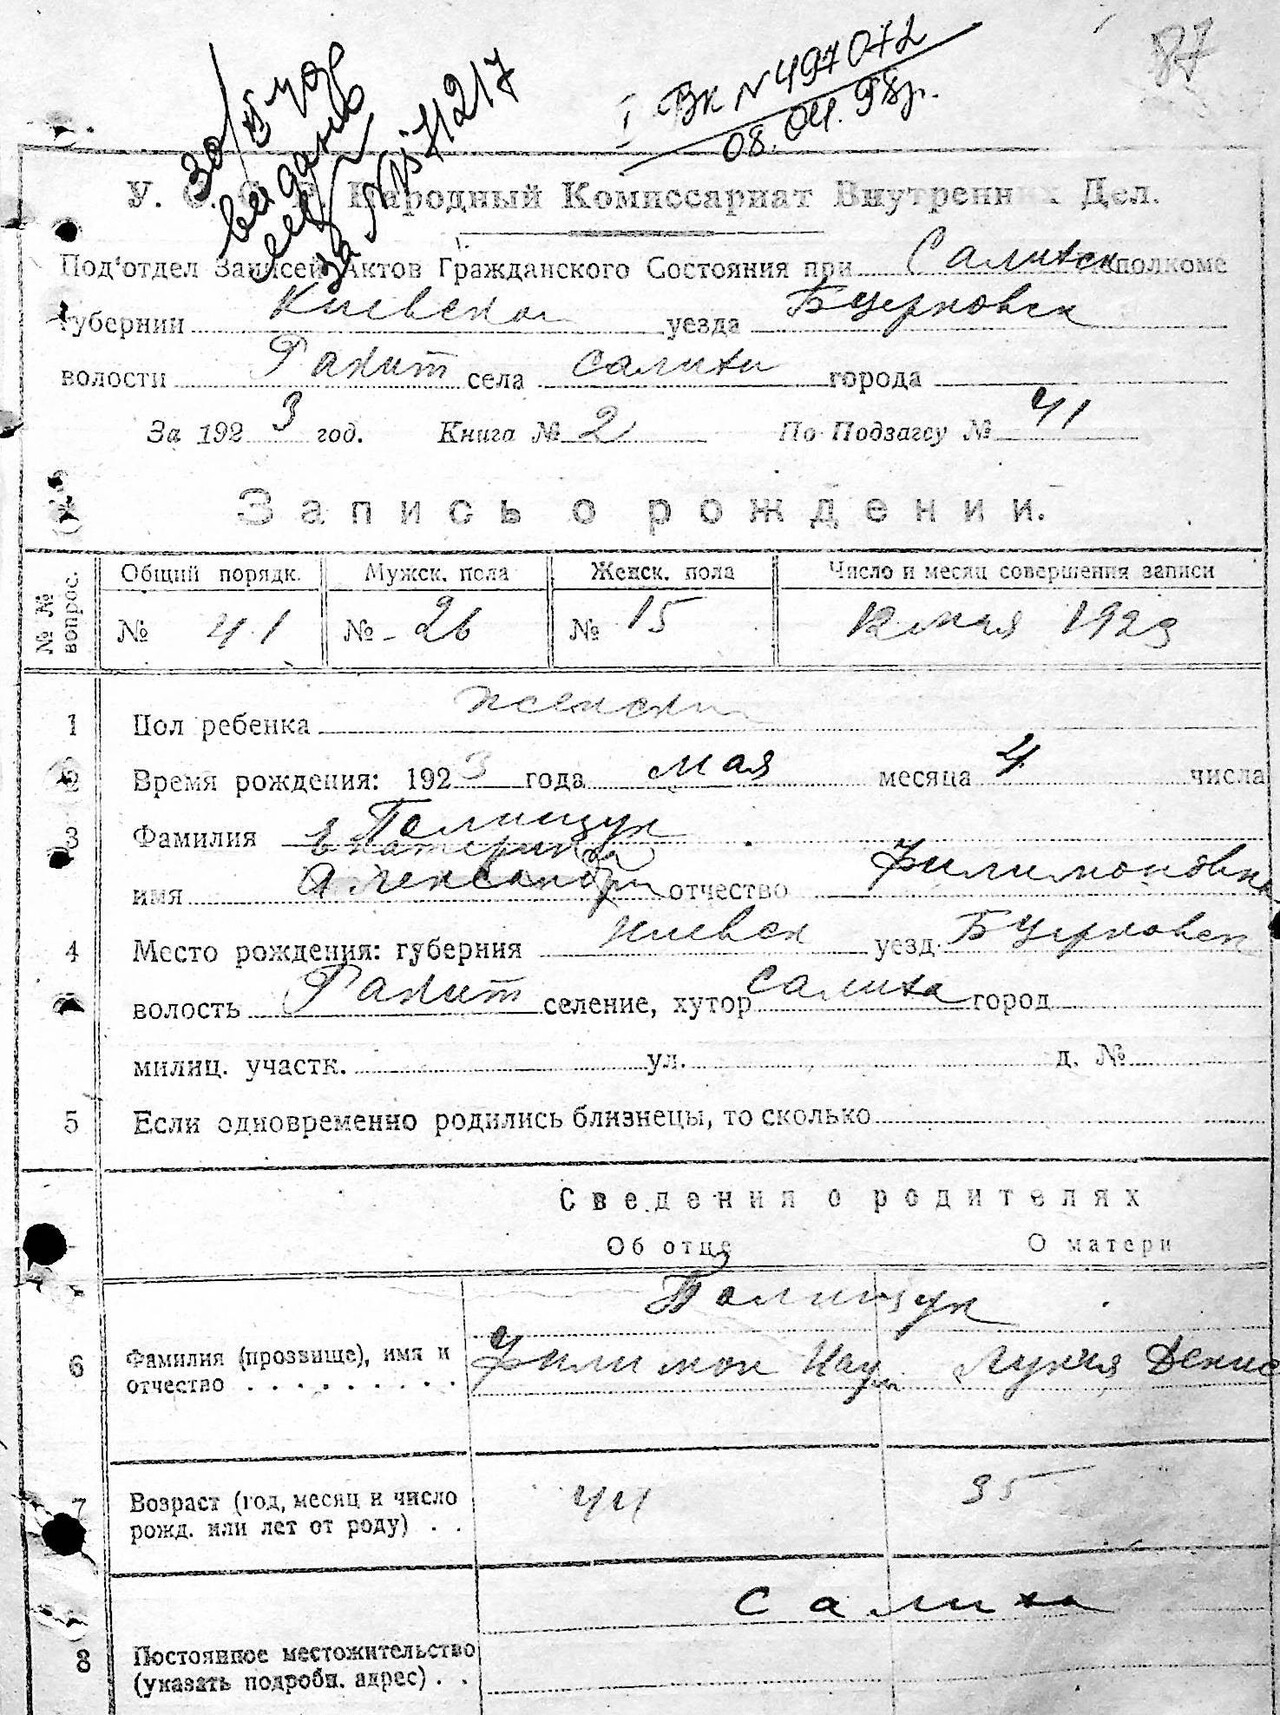 87
Вк N 497072
08.04.98р.
30/XI 40р
видано
за № 171217
У. С. С. Р. Народный Комиссариат Внутренних Дел.
Под'отдел Записей Актов Гражданского Состояния при Салихск исполкоме
Губернии Киевской уезда Бцерковск
волости Ракит села Салихи города
За 1923 год. Книга № 2 По Подзагсу № 41
Запись о рождении.
№ № вопрос.
Общий порядк. Мужск. пола Женск. пола Число и месяц совершения записи
№ 41 № - 26 № 15 12 мая 1923
1 Пол ребенка женский
2 Время рождения: 1923 года мая месяца 4 числа
3 Фамилия Полищук
Екатерина
имя Александра отчество Филимоновна
4 Место рождения: губерния Киевск уезд Бцерковск
волость Ракит селение, хутор Салиха город
милиц. участк. ул. д. №
5 Если одновременно родились близнецы, то сколько
Сведения о родителях
Об отце О матери
Полищук
6 Фамилия (прозвище), имя и отчество . . . . . . . . . Филимон Наум Лукия Денис
7 Возраст (год, месяц и число рожд. или лет от роду) . . 44 35
Салиха
8 Постоянное местожительство (указать подробн. адрес) . .